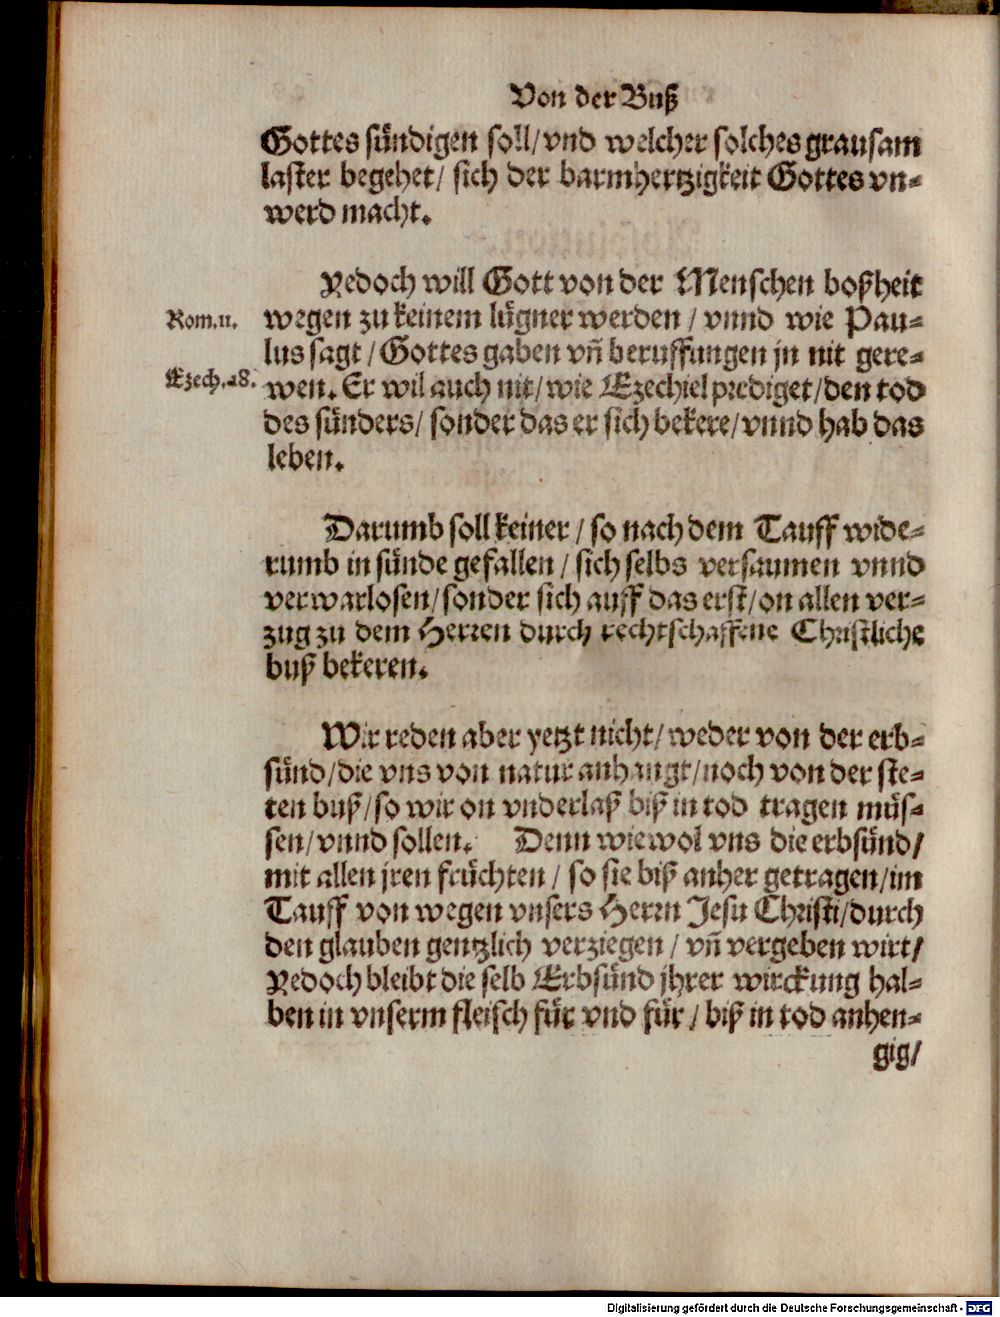 Von der Buß
Gottes sündigen soll/vnd welcher solches grausam
laster begehet/ sich der barmhertzigkeit Gottes vn-
werd macht.
Yedoch will Gott von der Menschen boßheit
Rom.11.
wegen zu keinem lügner werden / vnnd wie Pau-
lus sagt / Gottes gaben vñ beruffungen jn nit gere-
Ezech.18.
wen. Er wil auch nit/ wie Ezechiel prediget/den tod
des sünders/ sonder das er sich bekere/ vnnd hab das
leben.
Darumb soll keiner / so nach dem Tauff wide-
rumb in sünde gefallen / sich selbs versaumen vnnd
verwarlosen/ sonder sich auff das erst/ on allen ver-
zug zu dem Herren durch rechtschaffene Christliche
buß bekeren.
Wir reden aber yetzt nicht/ weder von der erb-
sünd/die vns von natur anhangt/noch von der ste-
ten buß/so wir on vnderlaß biß in tod tragen müs-
sen/vnnd sollen. Denn wiewol vns die erbsünd/
mit allen jren früchten / so sie biß anher getragen/im
Tauff von wegen vnsers Herrn Jesu Christi/durch
den glauben gentzlich verziegen / vñ vergeben wirt/
Yedoch bleibt die selb Erbsünd jhrer wirckung hal-
ben in vnserm fleisch für vnd für / biß in tod anhen-
gig/
Digitalisierung gefördert durch die Deutsche Forschungsgemeinschaft - DFG